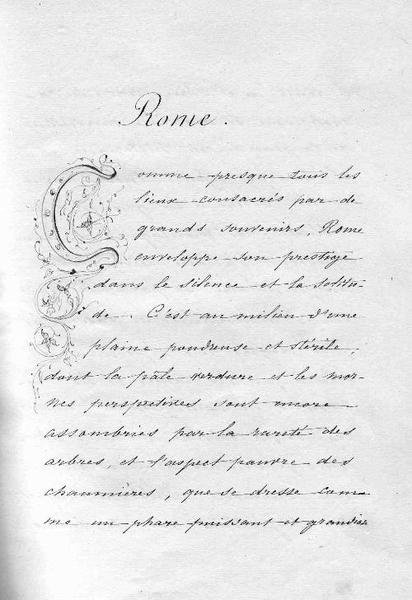 Rome.
Comme presque tous les
lieux consacrés par de
grands souvenirs, Rome
enveloppe son prestige
dans le silence et la solitu-
de. C'est au milieu d'une
plaine poudreuse et stérile,
dont la pâle verdure et les mor-
nes perspectives sont encore
assombries par la rareté des
arbres, et l'aspect pauvre des
chaumières, que se dresse com-
me un phare puissant et grandio